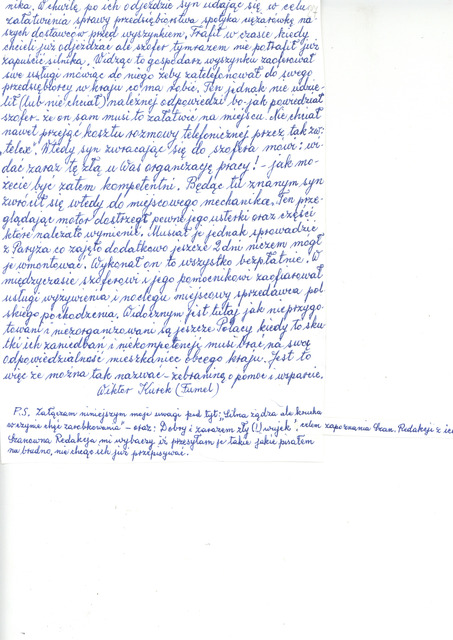 nika. W chwilę po ich odjeździe syn udając się w celu
załatwienia sprawy przedsiębiorstwa spotyka ciężarówkę na-
szych dostawców przed wyszynkiem. Trafił w czasie kiedy
chcieli już odjeżdżać ale szofer tymrazem nie potrafił już
zapuścić silnika. Widząc to gospodarz wyszynku zaoferował
swe usługi mówiąc do niego żeby zatelefonował do swego
przedsiębiorcy w kraju co ma robić. Ten jednak nie udzie-
lił (lub nie chciał) należnej odpowiedzi bo jak powiedział
szofer że on sam musi to załatwić na miejscu. Nie chciał
nawet przejąć kosztu rozmowy telefonicznej przez tak zw.
"telex". Wtedy syn zwracając się do szofera mówi: wi-
dać zaraz tę złą u Was organizację pracy! - jak mo-
żecie być zatem kompetentni. Będąc tu znanym syn
zwrócił się wtedy do miejscowego mechanika. Ten prze-
glądając motor dostrzegł pewne jego usterki oraz części
które należało wymienić. Musiał je jednak sprowadzić
z Paryża co zajęło dodatkowo jeszcze 2 dni niczem mógł
je wmontować. Wykonał on to wszystko bezpłatnie. W
międzyczasie szoferowi i jego pomocnikowi zaofiarował
usługi wyżywienia i noclegu miejscowy sprzedawca pol-
skiego pochodzenia. Widocznym jest tutaj jak nieprzygo-
towani i niezorganizowani są jeszcze Polacy kiedy to sku-
tki ich zaniedbań i niekompetencji musi brać na swoją
odpowiedzialność mieszkaniec obcego kraju. Jest to
więc że można tak nazwać - żebraniną o pomoc i wsparcie.
Wiktor Kurek (Fumel)
P.S. Załączam niniejszym moje uwagi pod tyt: "Silna żądza ale krucha
w czynie chęć zarobkowania" - oraz: Dobry i zarazem zły (!) wujek", celem zapoznania Szan. Redakcji z ich
Szanowna Redakcja mi wybaczy iż przesyłam je takie jakie pisałem
na brudno, nie chcąc ich już przepisywać.